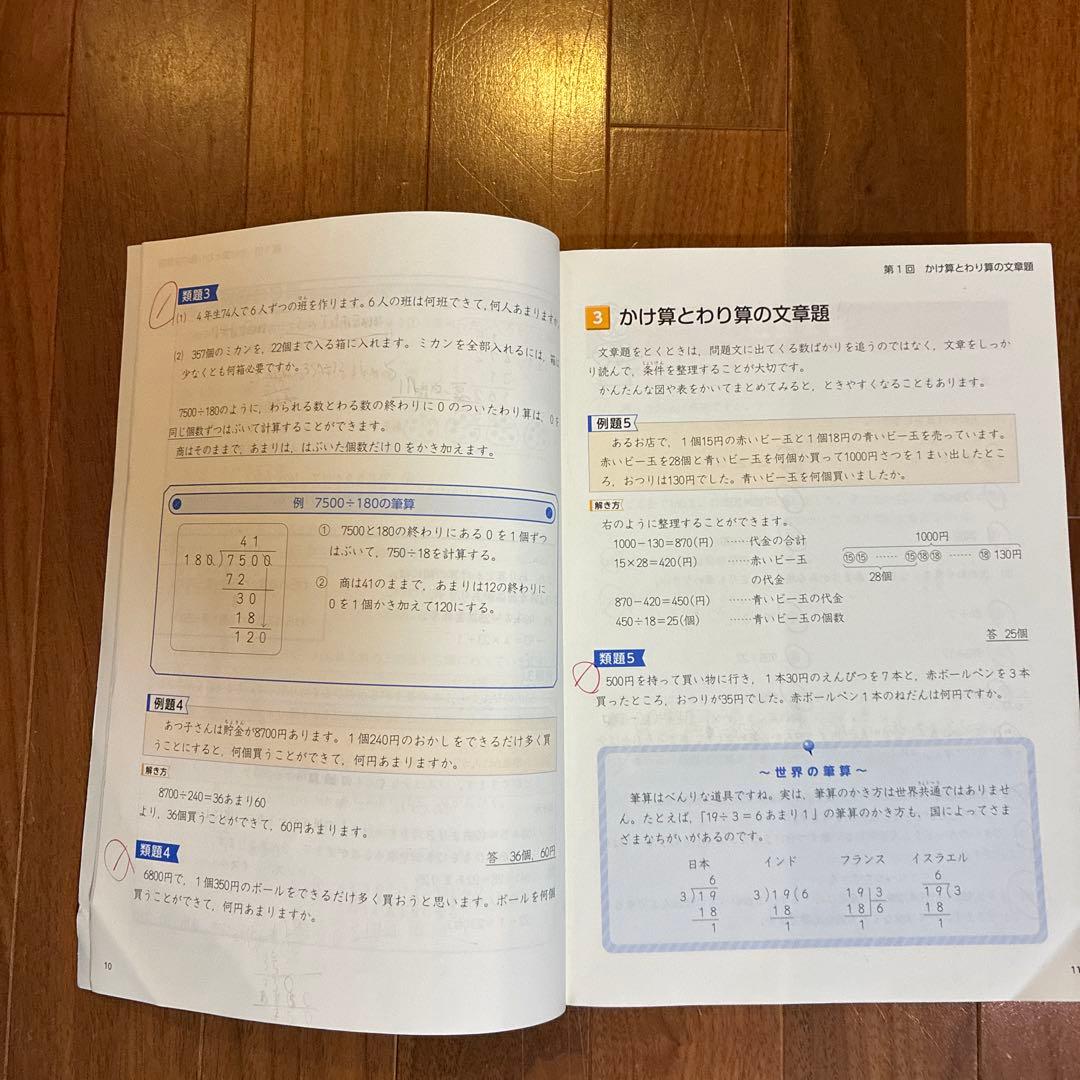 類題3
(1) 4年生74人で6人ずつの班を作ります。6人の班は何班できて，何人あまりますか
(2) 357個のミカンを，22個まで入る箱に入れます。ミカンを全部入れるには，箱は
少なくとも何箱必要ですか。
7500÷180のように，わられる数とわる数の終わりに0のついたわり算は，0を
同じ個数ずつはぶいて計算することができます。
商はそのままで，あまりは，はぶいた個数だけ0をかき加えます。
例 7500÷180の筆算
41
180)7500
72
30
18
120
① 7500と180の終わりにある0を1個ずつ
はぶいて，750÷18を計算する。
② 商は41のままで，あまりは12の終わりに
0を1個かき加えて120にする。
例題4
あつ子さんは貯金が8700円あります。1個240円のおかしをできるだけ多く買
うことにすると，何個買うことができて，何円あまりますか。
解き方
8700÷240=36あまり60
より，36個買うことができて，60円あまります。
答 36個，60円
類題4
6800円で，1個350円のボールをできるだけ多く買おうと思います。ボールを何個
買うことができて，何円あまりますか。
10
第1回 かけ算とわり算の文章題
3 かけ算とわり算の文章題
文章題をとくときは，問題文に出てくる数ばかりを追うのではなく，文章をしっか
り読んで，条件を整理することが大切です。
かんたんな図や表をかいてまとめてみると，ときやすくなることもあります。
例題5
あるお店で，1個15円の赤いビー玉と1個18円の青いビー玉を売っています。
赤いビー玉を28個と青いビー玉を何個か買って1000円さつを1まい出したとこ
ろ，おつりは130円でした。青いビー玉を何個買いましたか。
解き方
右のように整理することができます。
1000-130=870(円) ……代金の合計
15×28=420(円) ……赤いビー玉
の代金
870-420=450(円) ……青いビー玉の代金
450÷18=25(個) ……青いビー玉の個数
1000円
⑮⑮ …… ⑮⑱⑱ …… ⑱ 130円
28個
答 25個
類題5
500円を持って買い物に行き，1本30円のえんぴつを7本と，赤ボールペンを3本
買ったところ，おつりが35円でした。赤ボールペン1本のねだんは何円ですか。
～世界の筆算～
筆算はべんりな道具ですね。実は，筆算のかき方は世界共通ではありませ
ん。たとえば，「19÷3＝6あまり1」の筆算のかき方も，国によってさま
ざまなちがいがあるのです。
日本 インド フランス イスラエル
6 6
3)19 3)19(6 19|3 19(3
18 18 18|6 18
1 1 1 1
11